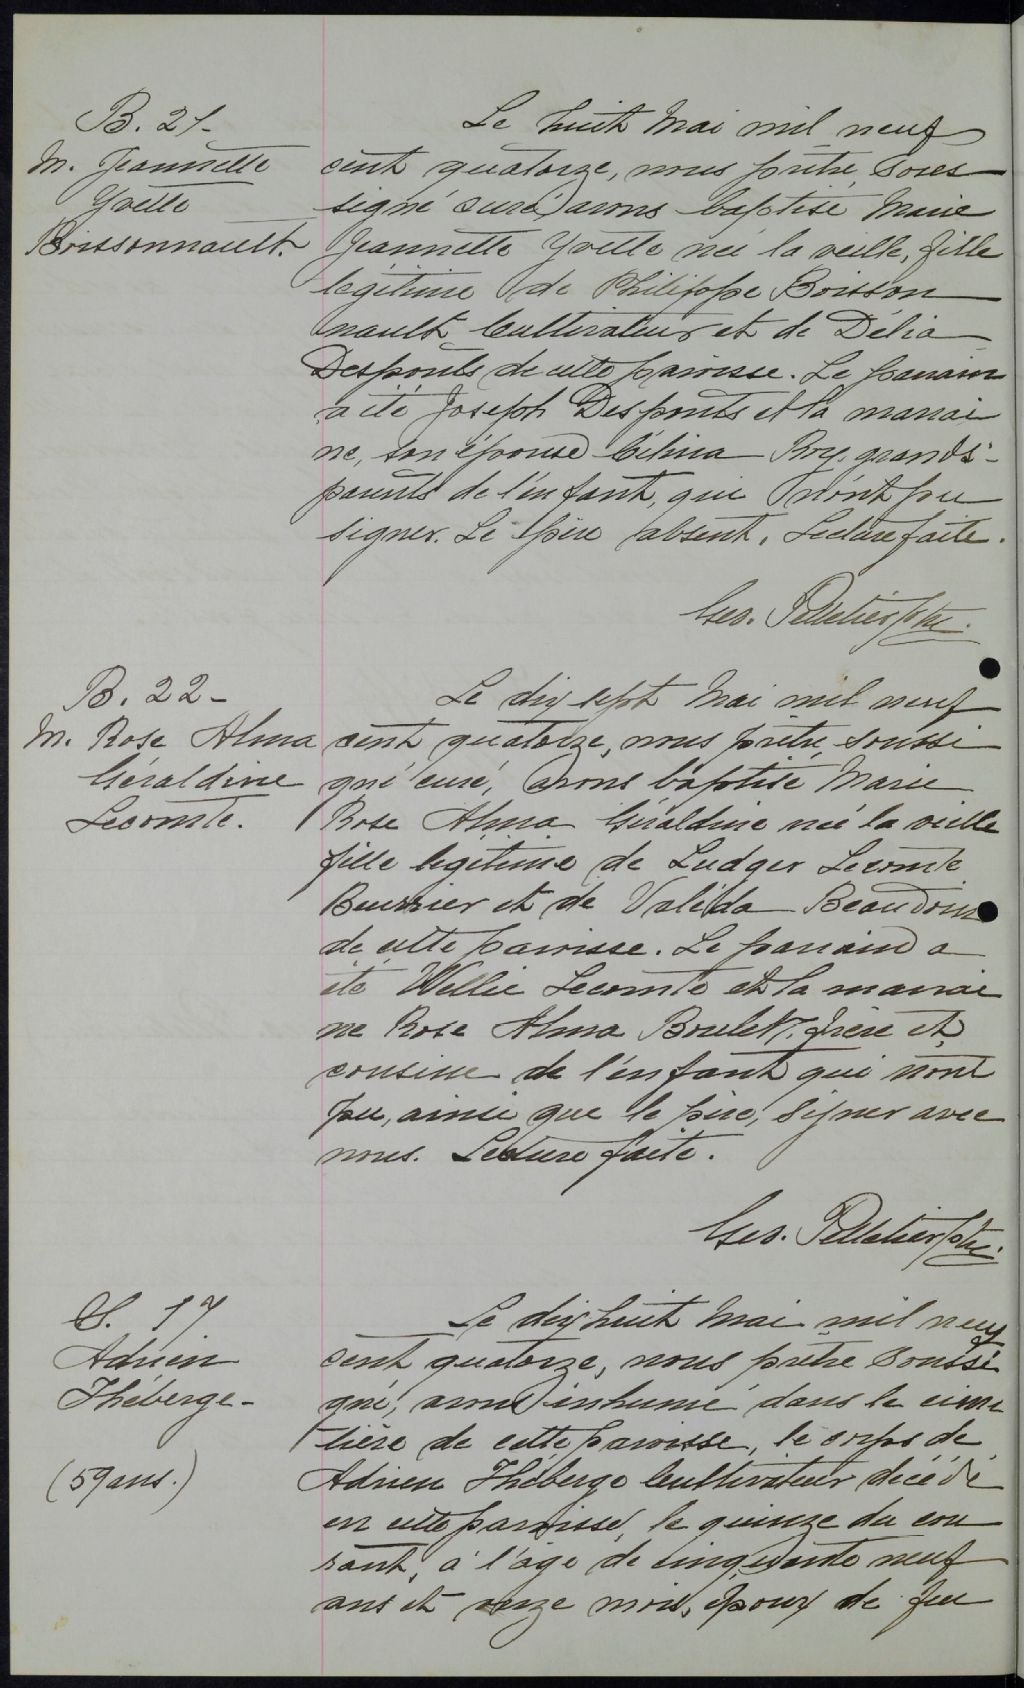 B. 21-
M. Jeannette
Yvette
Boissonnault.
Le huit Mai mil neuf
cent quatorze, nous prêtre sous
signé curé avons baptisé Marie
Jeannette Yvette née la veille, fille
legitime de Philippe Boisson
nault Cultivateur et de Délia
Desponts de cette paroisse. Le parrain
a été Joseph Desponts et la marrai
ne, son épouse Célina Roy grands-
parents de l'enfant, qui n'ont pu
signer. Le père absent. Lecture faite.
Geo. Pelletier Ptre.
B. 22-
M. Rose Alma
Géraldine
Lecomte.
Le dix sept Mai mil neuf
cent quatorze, nous prêtre, soussi
gné curé, avons baptisé Marie
Rose Alma Géraldine née la veille
fille legitime de Ludger Lecomte
Beurrier et de Valéda Beaudoin
de cette paroisse. Le parrain a
été Wellie Lecomte et la marrai
ne Rose Alma Boulet, frère et
cousine de l'enfant qui n'ont
pu, ainsi que le père, signer avec
nous. Lecture faite.
Geo. Pelletier Ptre.
S. 17
Adrien
Théberge-
(59 ans.)
Le dix huit Mai mil neuf
cent quatorze, nous prêtre soussi
gné, avons inhumé dans le cime
tière de cette paroisse, le corps de
Adrien Théberge Cultivateur décédé
en cette paroisse, le quinze du cou
rant, à l'âge de cinquante neuf
ans et onze mois, époux de feu